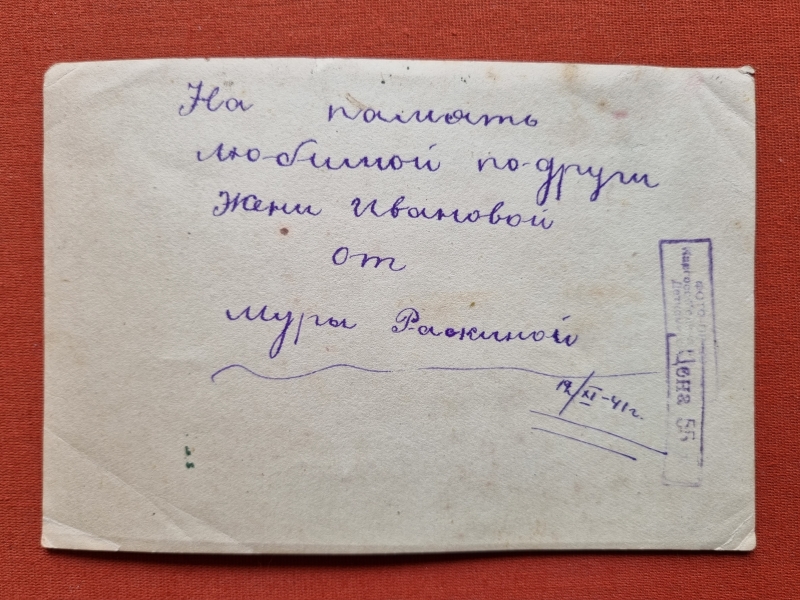 На память
любимой по-други
Жени Ивановой
от
Муры Раскиной
12/XI-41г.
Цена 55